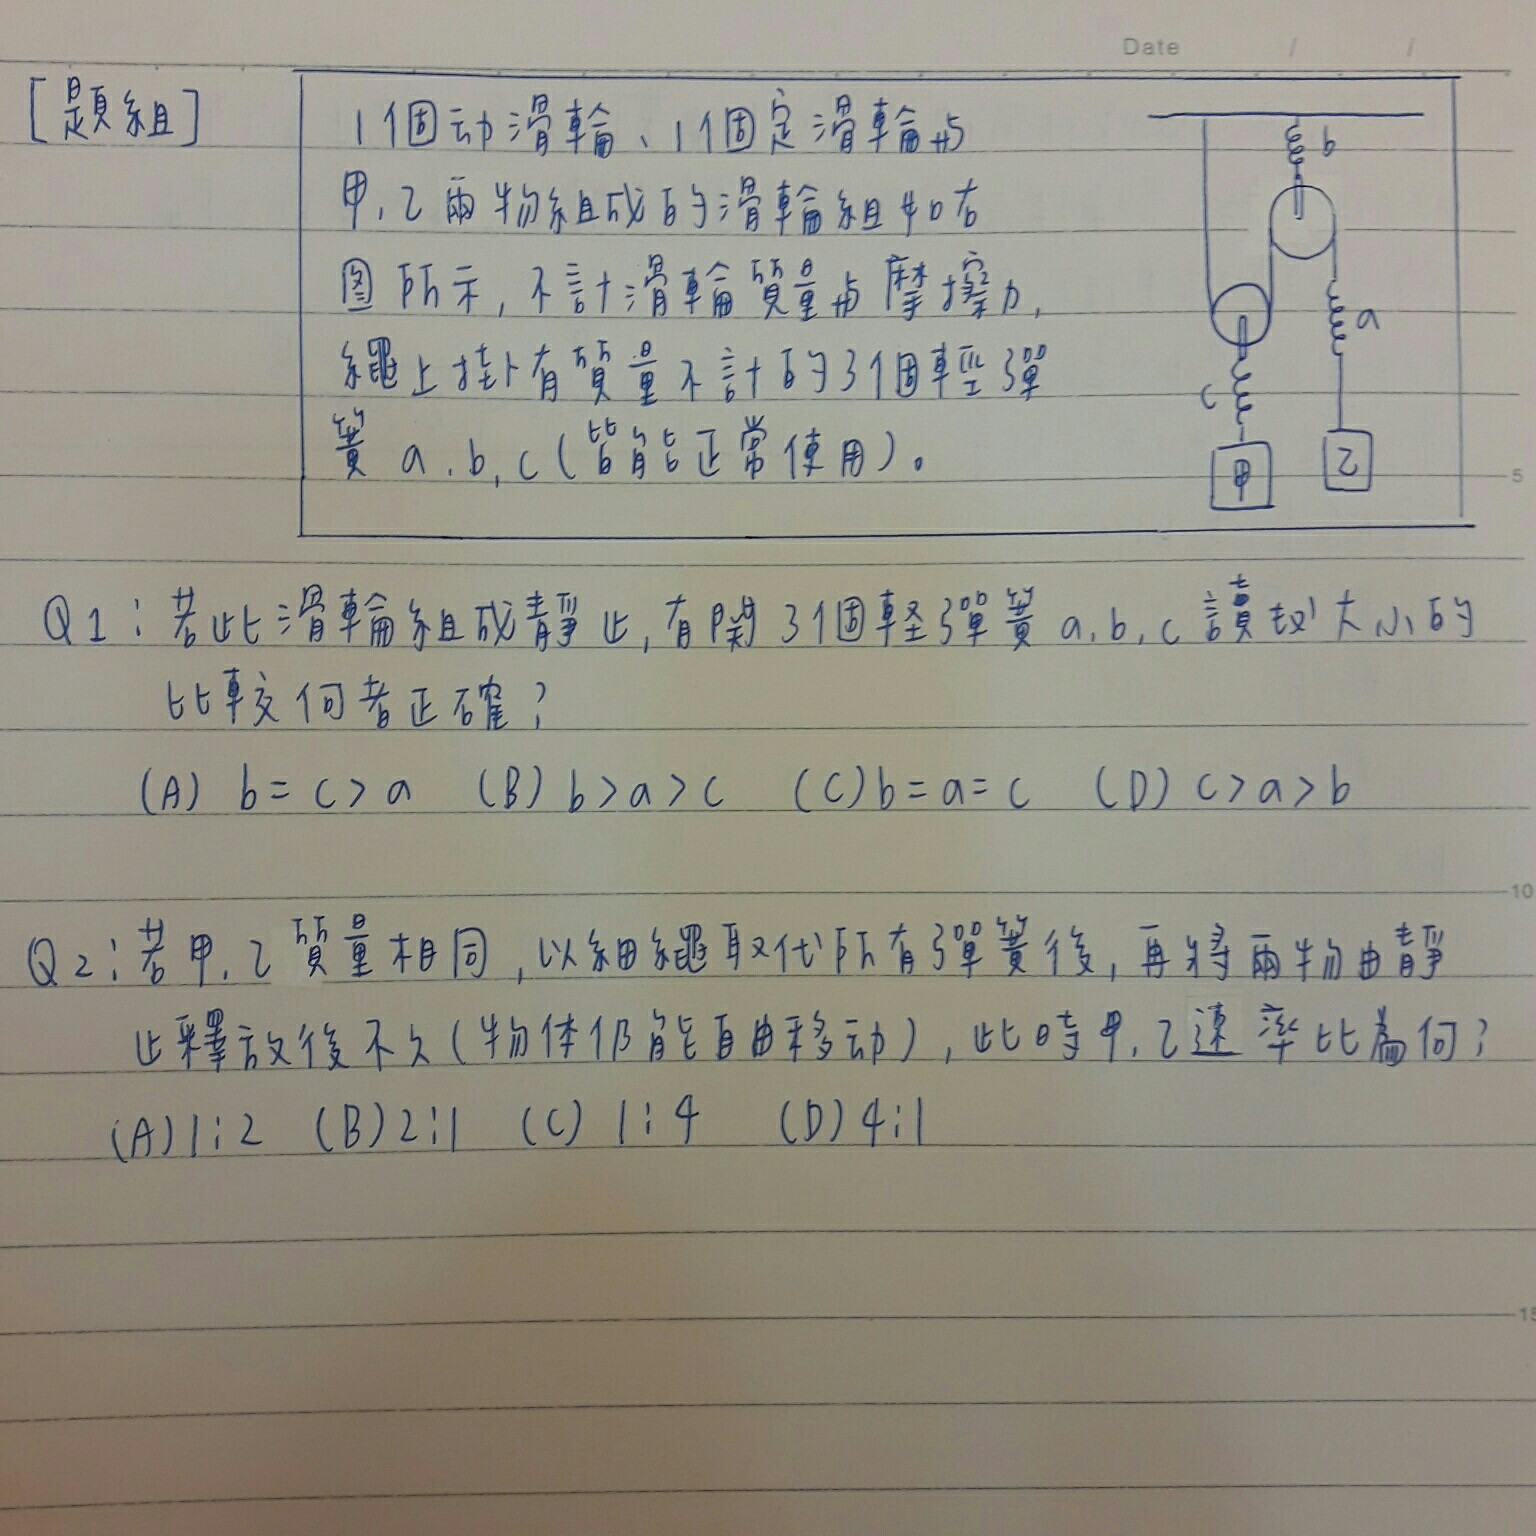 Date / /
[題組]
1個动滑輪、1個定滑輪与
甲、乙兩物組成的滑輪組如右
图所示,不計滑輪質量与摩擦力,
繩上掛有質量不計的3個輕彈
簧a、b、c(皆能正常使用)。
b
a
c
甲
乙
5
Q1:若此滑輪組成靜止,有関3個軽彈簧a、b、c讀数大小的
比較何者正確?
(A) b=c>a (B) b>a>c (C) b=a=c (D) c>a>b
10
Q2:若甲、乙質量相同,以細繩取代所有彈簧後,再將兩物由靜
止釋放後不久(物体仍能自由移动),此時甲、乙速率比為何?
(A)1:2 (B)2:1 (C) 1:4 (D)4:1
15